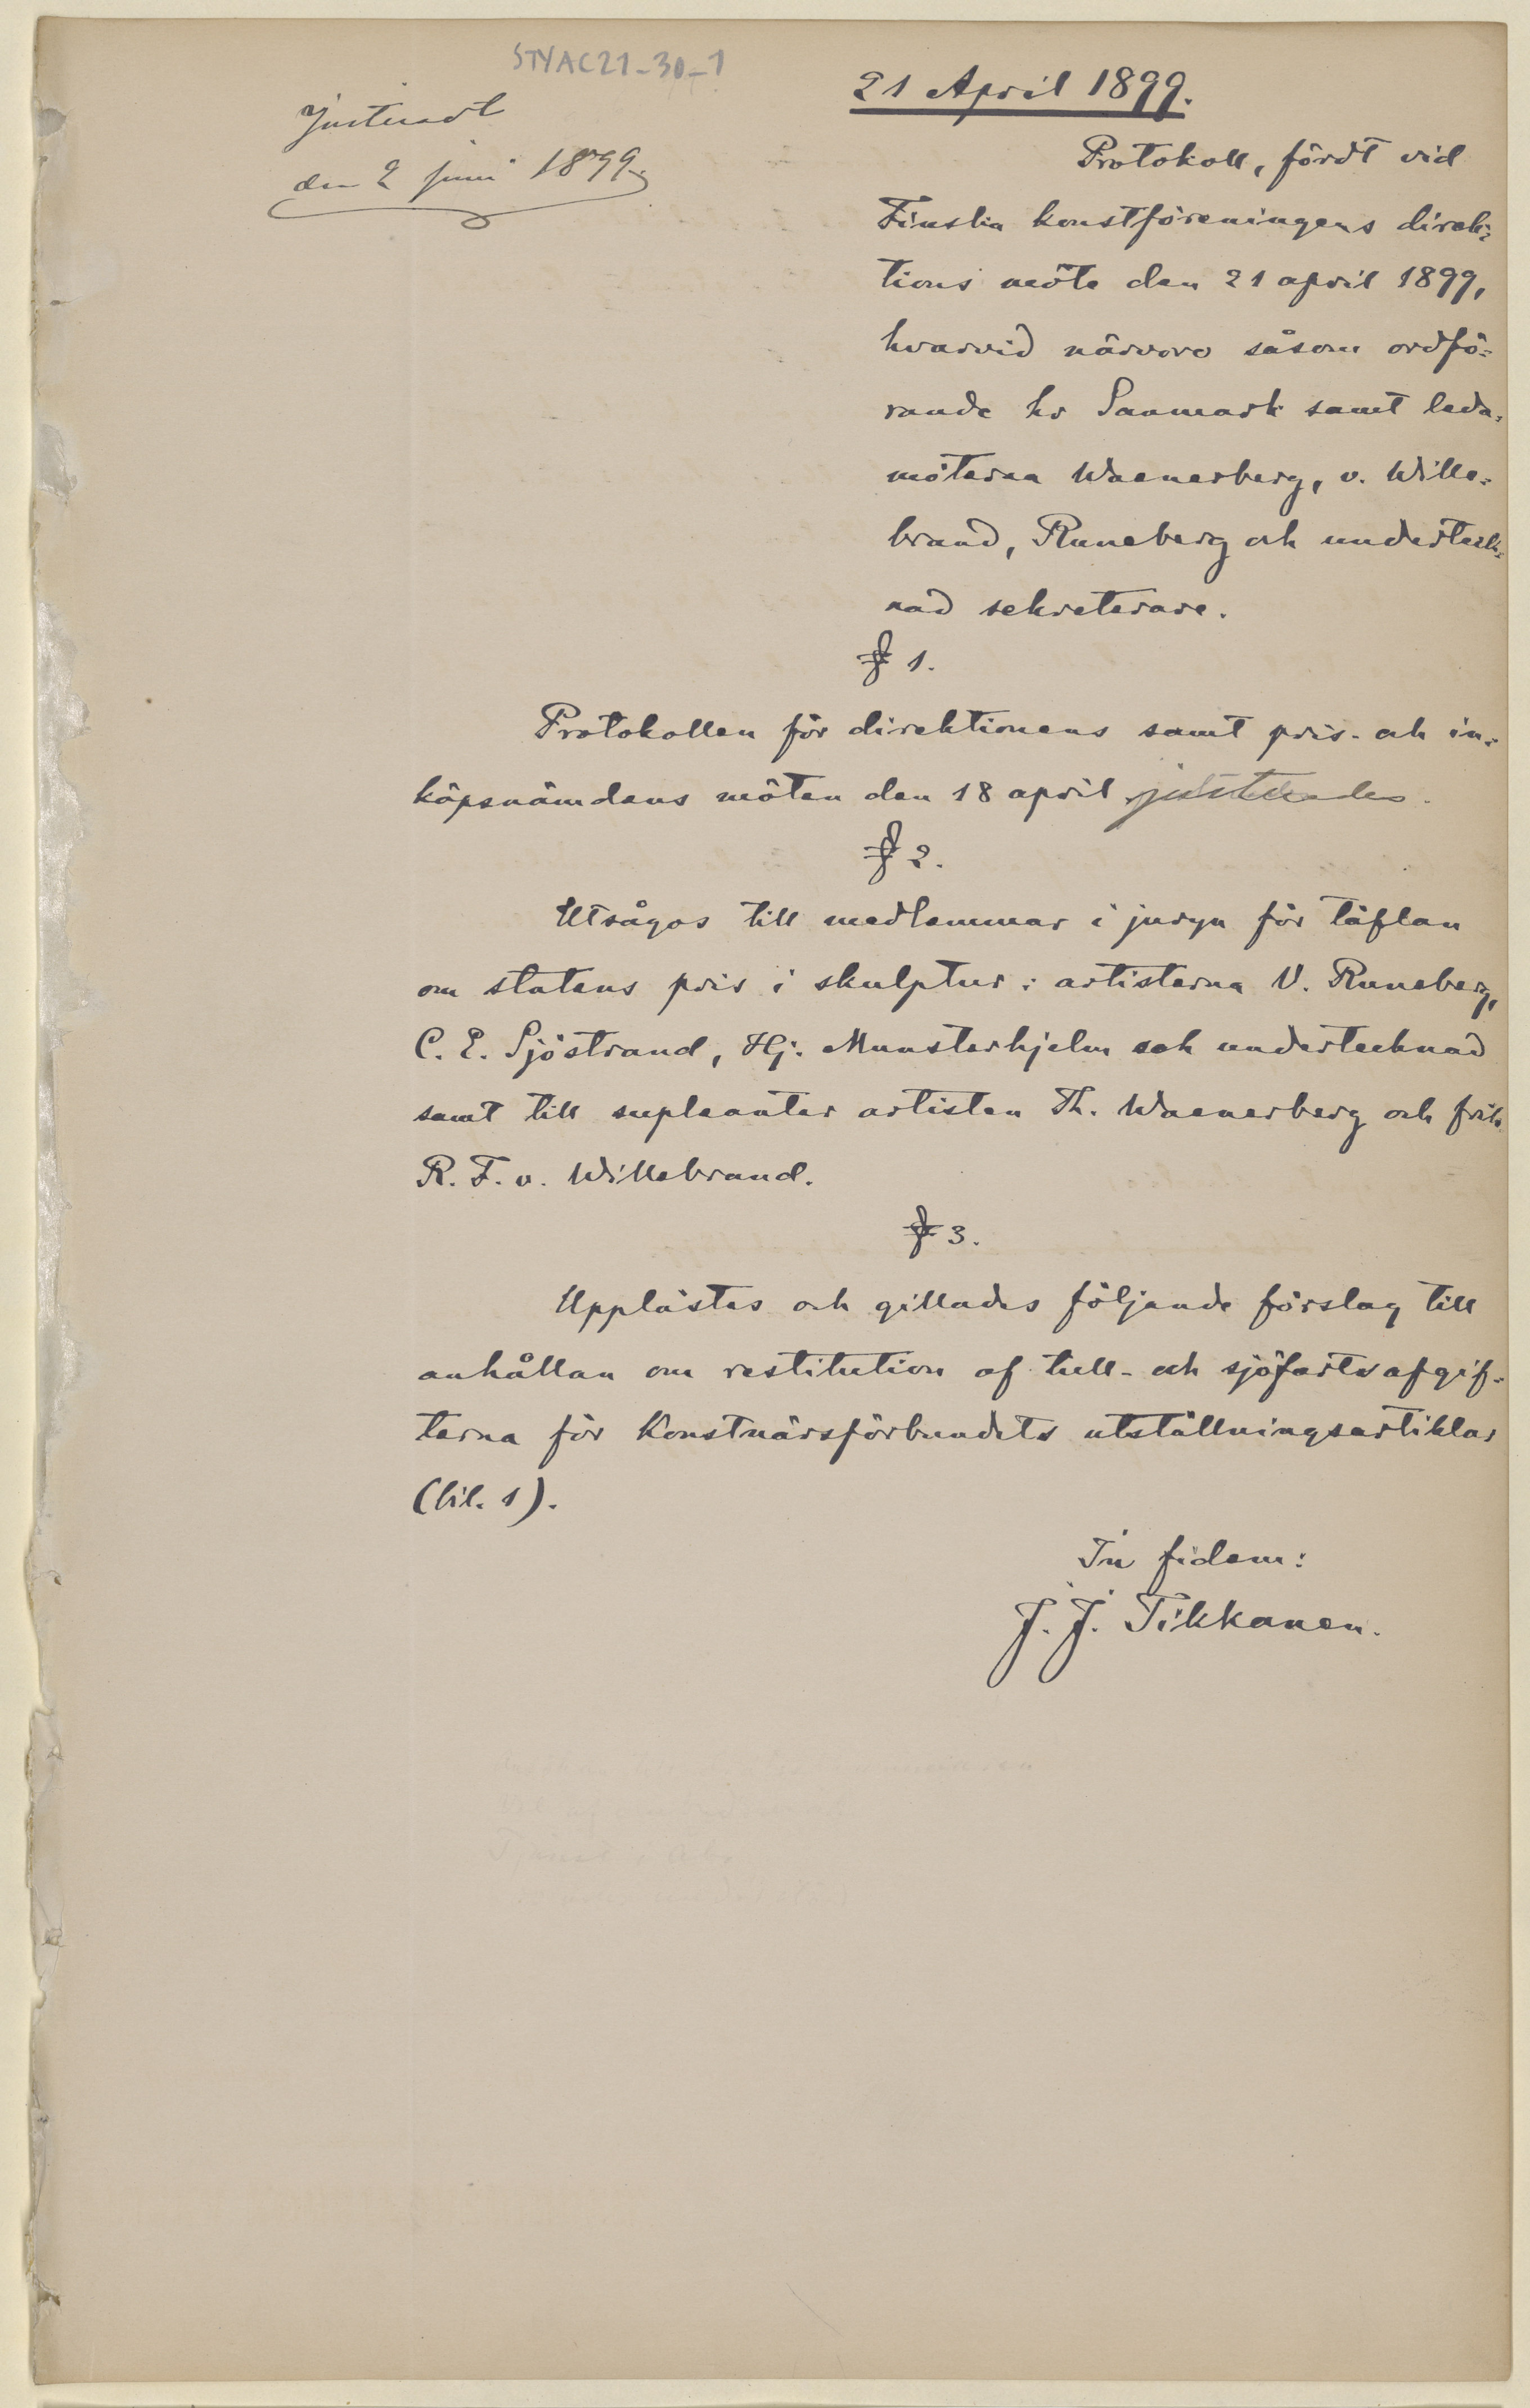 STYAC21-30-1
21 April 1899.
Justeradt
den 2 juni 1899.
Protokoll, fördt vid
Finska konstföreningens direk=
tions möte den 21 april 1899,
hvarvid närvoro såsom ordfö=
rande hr Sanmark samt leda=
möterna Waenerberg, v. Wille=
brand, Runeberg och underteck=
nad sekreterare.
§ 1.
Protokollen för direktionens samt pris- och in=
köpsnämdens möten den 18 april justerades.
§ 2.
Utsågos till medlemmar i juryn för täflan
om statens pris i skulptur: artisterna V. Runeberg,
C. E. Sjöstrand, Hj. Munsterhjelm och undertecknad
samt till supleanter artisten Th. Waenerberg och frih.
R. F. v. Willebrand.
§ 3.
Upplästes och gillades följande förslag till
anhållan om restitution af tull- och sjöfartsafgif=
terna för Konstnärsförbundets utställningsartiklar
(bil. 1).
In fidem:
J. J. Tikkanen.